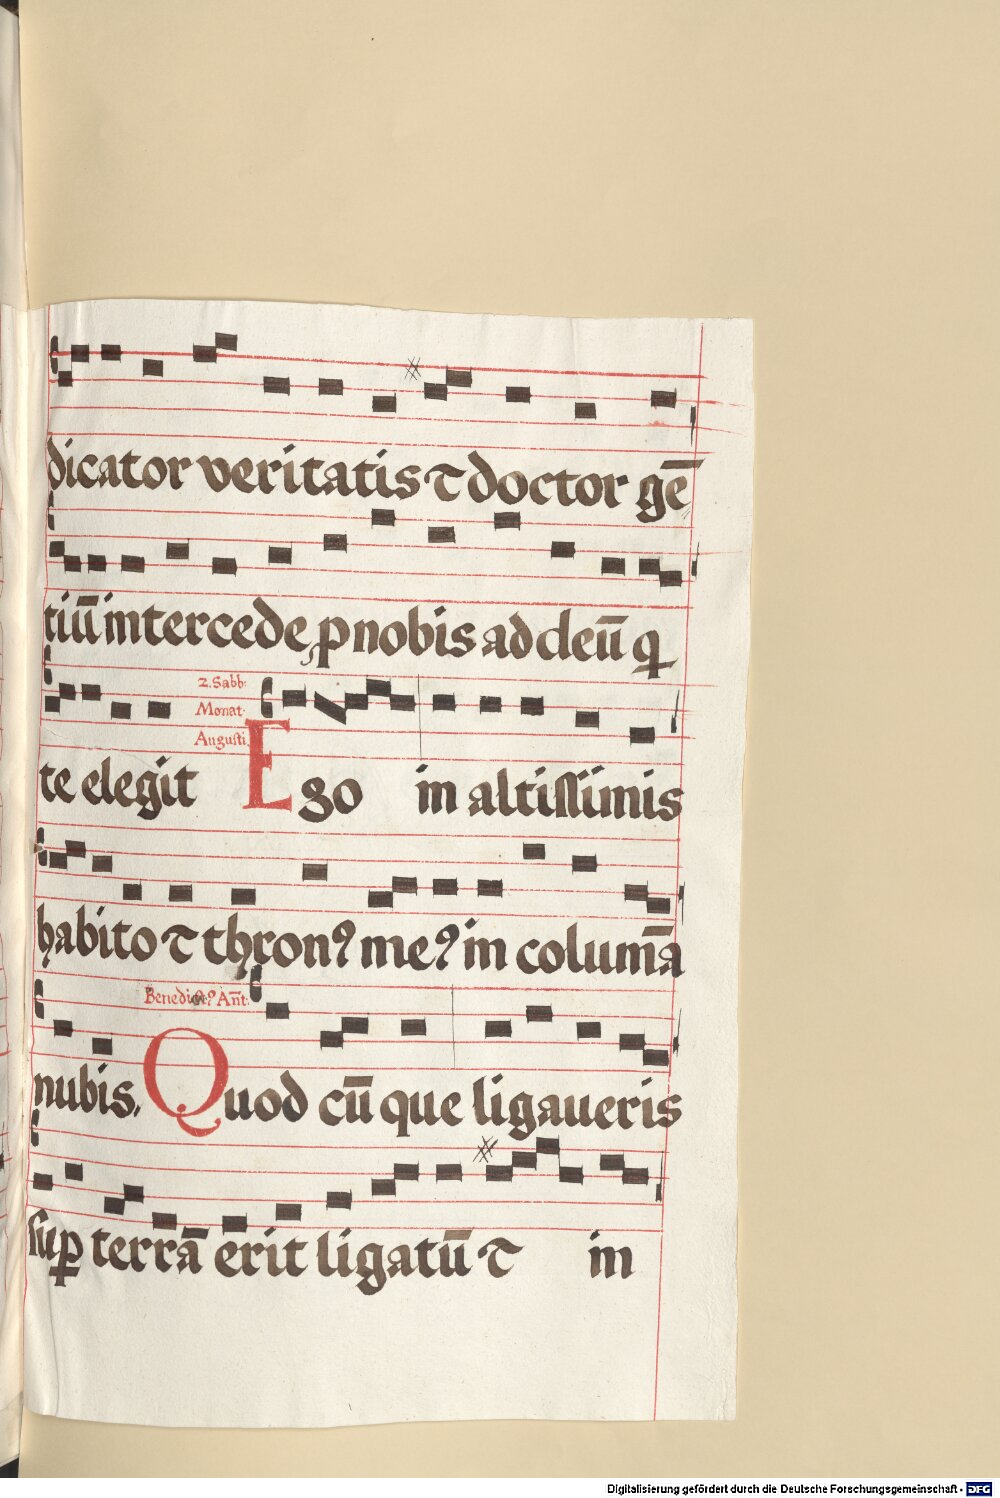 dicator veritatis ⁊ doctor gē
tiū intercede p nobis ad deū q
2. Sabb.
Monat.
Augusti.
te elegit Ego in altissimis
habito ⁊ thronꝰ meꝰ in columā
Benedictꝰ Añt:
nubis. Quod cū que ligaueris
suꝑ terrā erit ligatū ⁊ in
Digitalisierung gefördert durch die Deutsche Forschungsgemeinschaft - DFG